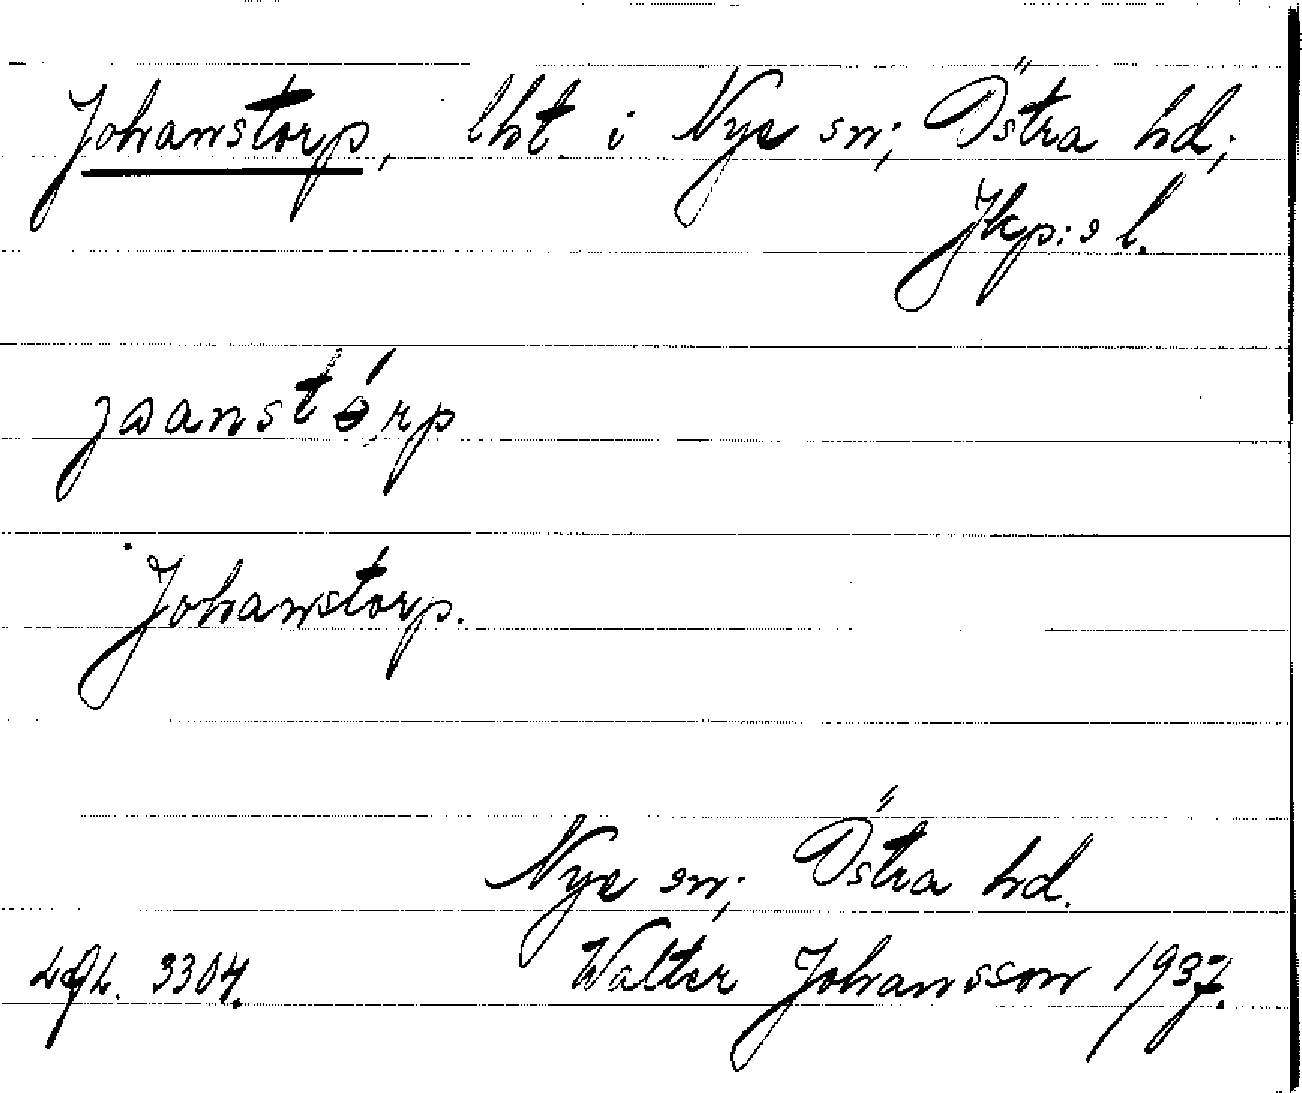 Johanstorp, lht i Nye sn; Östra hd;
Jkp:s l.
Johanstorp.
Nye sn; Östra hd.
3304. Walter Johansson 1937.